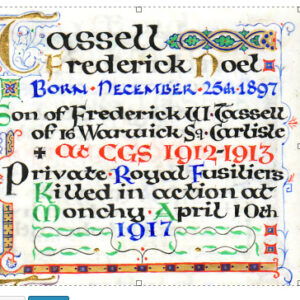 Tassell
Frederick Noel
Born · December · 25th · 1897
Son of Frederick W. Tassell
of 16 Warwick Sq. Carlisle
✠ at CGS 1912-1913
Private · Royal Fusiliers
Killed in action at
Monchy · April 10th
1917